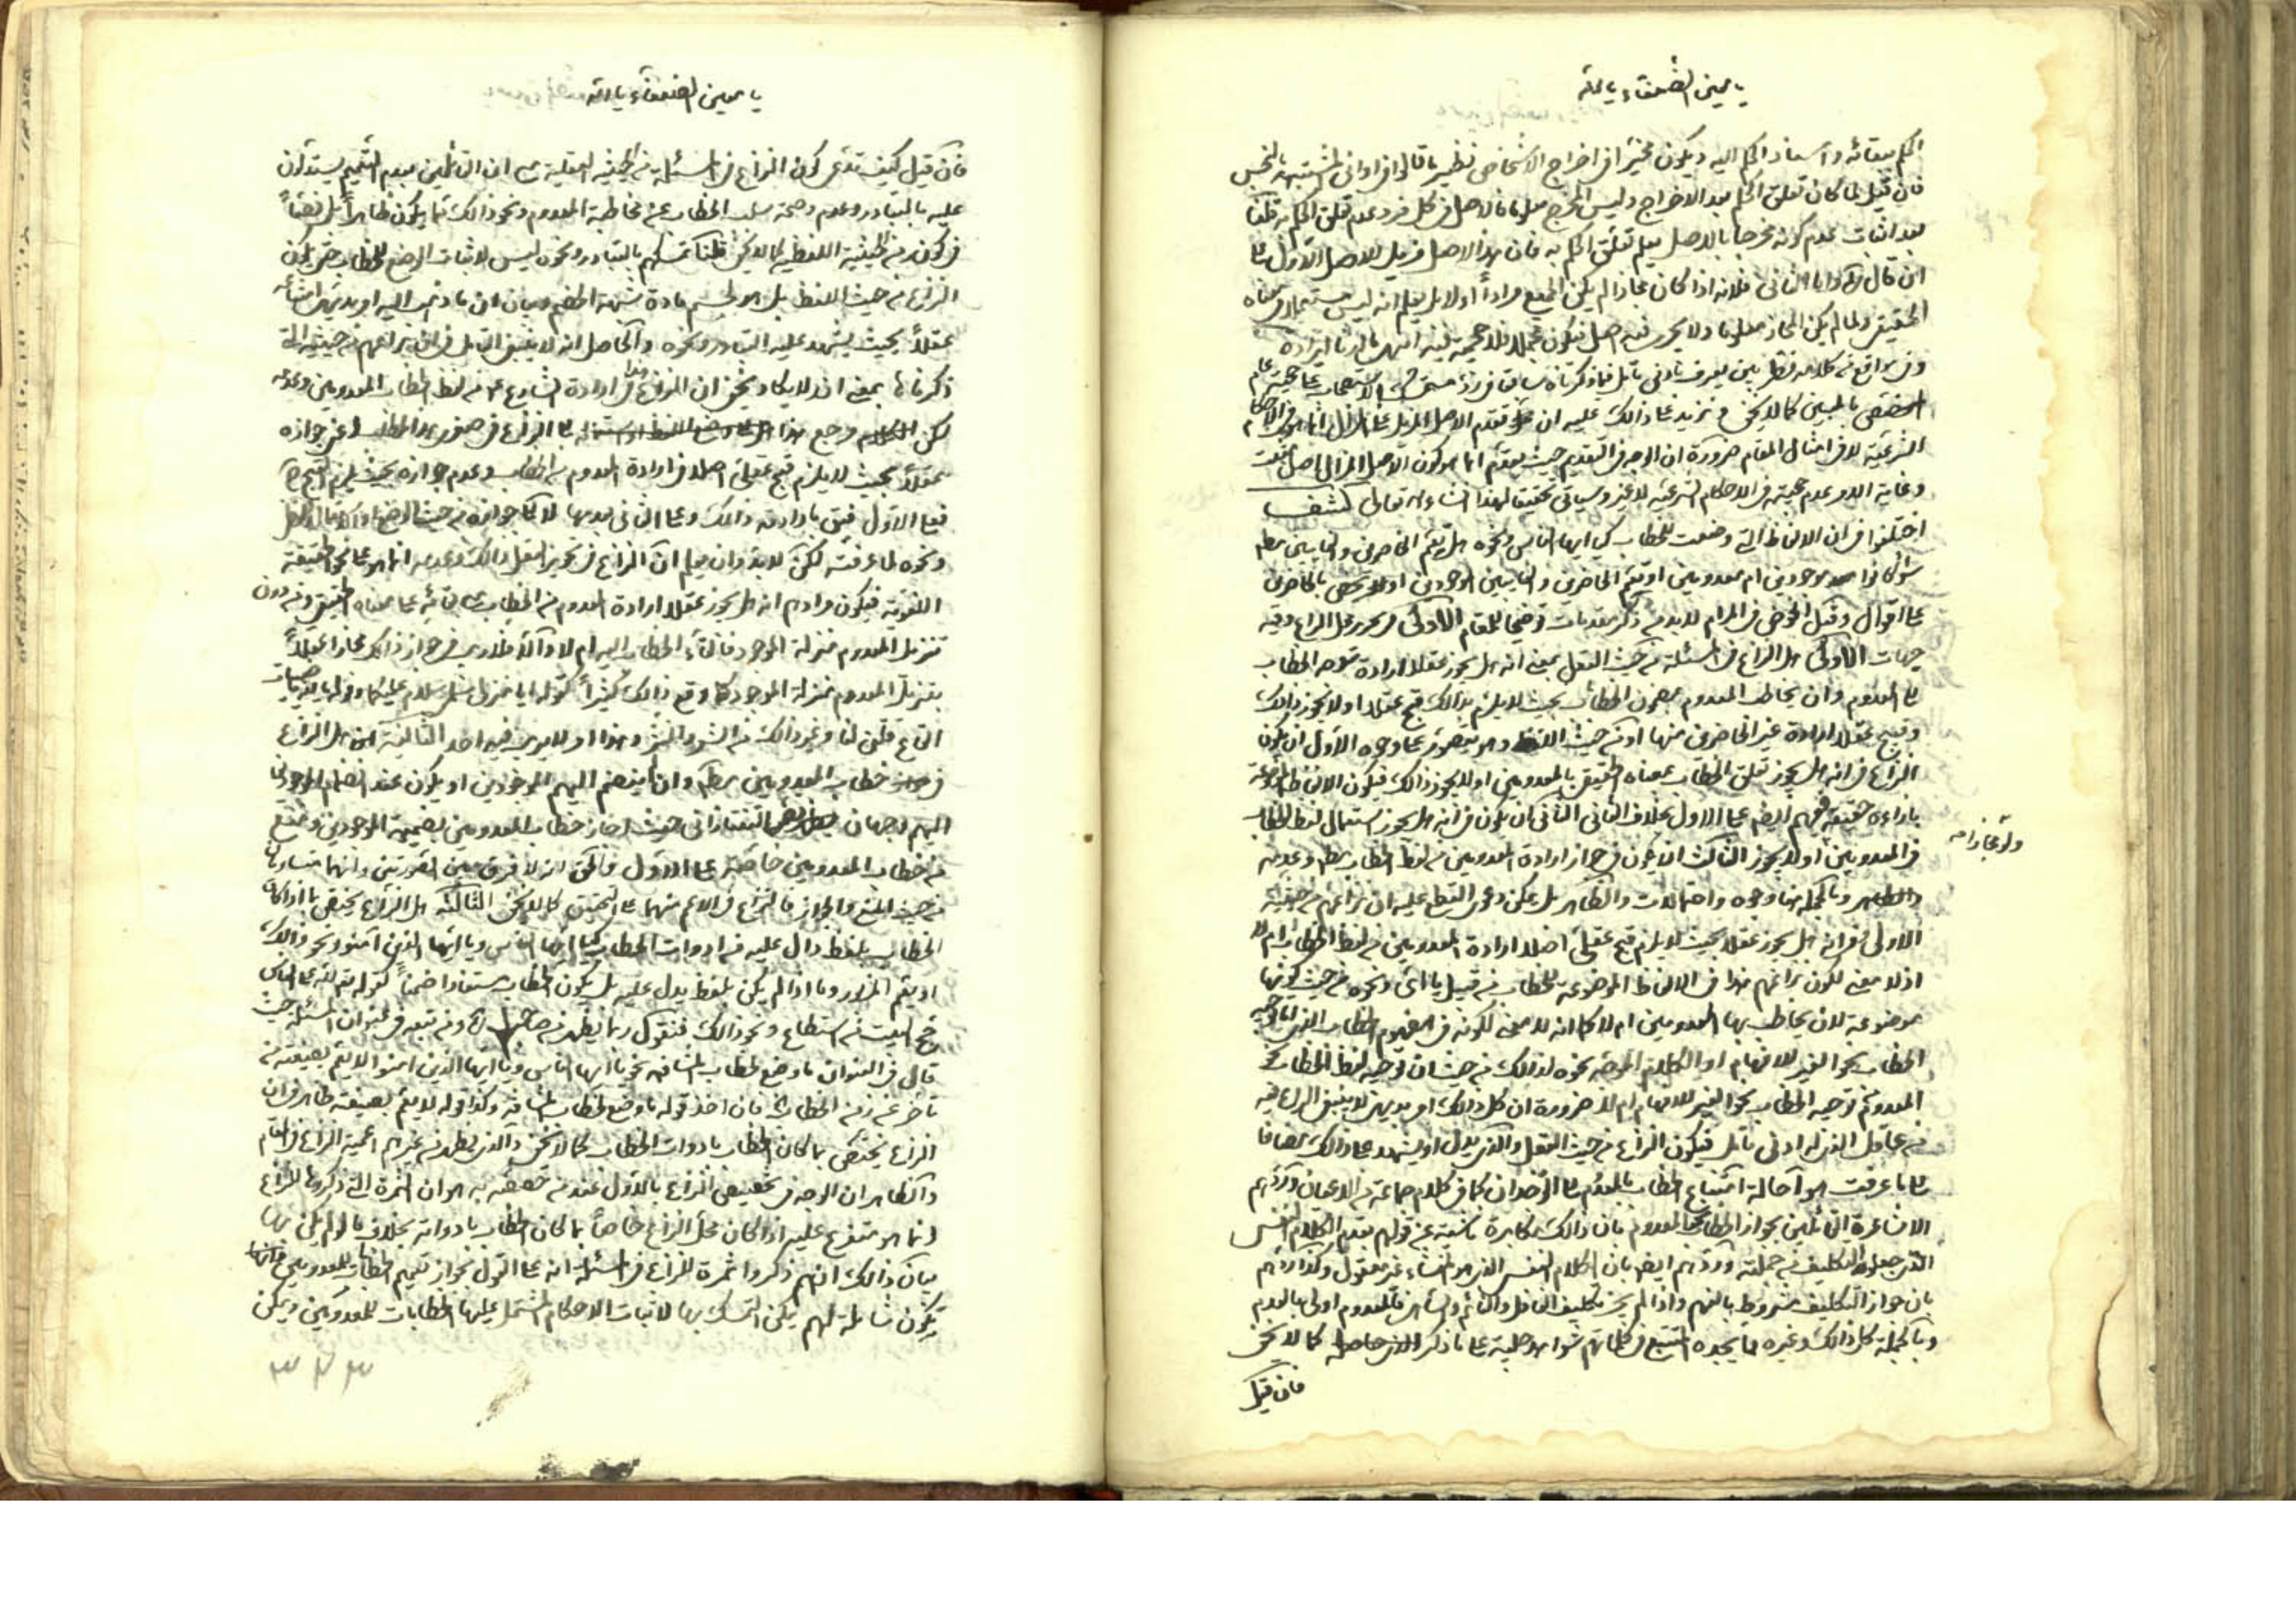 يا معين الضعفاء يا الله
الحكم ببقائه واسناد الحكم اليه ويكون مخيّرا في اخراج الاشخاص نظير ما قالوا في اواني المشتبهة بالنجس
فان قيل لما كان تعلق الحكم بعد الاخراج وليس المخرج معلوما فالاصل في كل فرد عدم تعلق الحكم به قلنا
بعد اثبات عدم كونه مخرجا بالاصل يعلم تعلق الحكم به فان هذا الاصل مزيل للاصل الاول
ان قال واما الثاني فلانه اذا كان مجازا لم يكن الجميع مرادا اولا بل يعلم انه ليس مستعملا في معناه
الحقيقي ولما لم يكن المجاز معلوما ولا يجري فيه اصل فيكون مجملا فلا حجية فيه انتهى ما اردنا ايراده
وفي مواقع من كلامه نظر يبين يعرف بادنى تأمل فيما ذكرناه سابقا
بالمبين كما لا يخفى ونزيد على ذالك عليه ان تقدم الاصل المزيل على المزال انما هو في الاحكام
الشرعية لا في امثال المقام ضرورة ان الوجه في التقديم حيث يقدم انما هو كون الاصل المزال
وغاية الامر عدم حجيته في الاحكام الشرعية لا غير وسيأتي تحقيقا لهذا انشاء الله تعالى كشف
اختلفوا في ان الالفاظ التي وضعت للخطاب كيا ايها الناس ونحوه هل يعم الحاضرين والغايبين مطم
سواء كانوا موجودين ام معدومين او يعم الحاضرين والغايبين الموجودين او لا بل يختص بالحاضرين
على اقوال وقبل الخوض في المرام لا بد من ذكر مقدمات توضيحا للمقام الاولى في تحرير محل النزاع وفيه
جهات الاولى هل النزاع في المسئلة من حيث العقل بمعنى انه هل يجوز عقلا ارادة توجه الخطاب
الى المعدوم وان يخاطب المعدوم بمضمون الخطاب بحيث لا يلزم بذالك قبح عقلا او لا يجوز ذالك
وقبيح عقلا ارادة غير الحاضرين منها او من حيث اللفظ وهو يتصور على وجوه الاول ان يكون
النزاع في انه هل يجوز تعلق الخطاب بمعناه الحقيقي بالمعدومين او لا يجوز ذالك فيكون الالفاظ الموضوعة
بازاءه حقيقة فيهم ايضا على الاول بخلاف الثاني الثاني ان يكون في انه هل يجوز استعمال لفظ الخطاب
ولو مجازا صح
في المعدومين او لا يجوز الثالث ان يكون في جواز ارادة المعدومين من لفظ الخطاب مطم وعدمه
وبالجملة هنا وجوه واحتمالات والظاهر بل يمكن دعوى القطع عليه ان نزاعهم من حيثية
الاولى في انه هل يجوز عقلا بحيث لا يلزم قبح عقلي اصلا ارادة المعدومين من لفظ الخطاب ام لا
اذ لا معنى لكون نزاعهم هذا في الالفاظ الموضوعة للخطاب من قبيل يا اي ونحوه من حيث كونها
موضوعة لان يخاطب بها المعدومين ام لا كما انه لا معنى لكونه في مفهوم الخطاب الذي
الخطاب نحو الغير للافهام او الكلام الموجه نحوه لذلك من حيث ان توجيه لفظ الخطاب
المعدوم توجيه الخطاب نحو الغير للافهام ام لا ضرورة ان كل ذالك امر بديهي لا ينبغي النزاع فيه
من عاقل الذي له ادنى تأمل فيكون النزاع من حيث العقل والذي يدل او يشهد على ذالك مضافا
الى ما عرفت هو احالة امتناع الخطاب بالمعدوم الى الوجدان كما في كلام جماعة من الاعيان وردهم
الاشاعرة القائلين بجواز الخطاب بالمعدوم بان ذالك مكابرة ناشئة عن قولهم بقدم الكلام النفسي
الذي جعلوا التكليف من جملته وردهم ايضا بان الكلام النفسي الذي هو المنشاء غير معقول وكذا ردهم
بان جواز التكليف مشروط بالفهم واذا لم يجز تكليف الغافل والنائم والساهي فالمعدوم اولى بالعدم
وبالجملة كل ذالك وغيره مما يجده المتتبع في كلماتهم شواهد جلية على ما ذكر كما لا يخفى
فان قيل
يا معين الضعفاء يا الله
فان قيل كيف تدعى كون النزاع في المسئلة من الحيثية العقلية مع ان القائلين بعدم التعميم يستدلون
عليه بالتبادر وعدم وصحة سلب الخطاب عن مخاطبة المعدوم ونحو ذالك مما يكون ظاهرا بل نصا
في كون من الحيثية اللفظية كما لا يخفى قلنا تمسكهم بالتبادر ونحوه ليس لاثبات الوضع للخطاب حتى يكون
النزاع من حيث اللفظ بل هو لحسم مادة شبهة الخصم وبيان ان ما ذهب اليه امر بديهي امتناعه
عقلا بحيث يشهد عليه التبادر ونحوه والحاصل انه لا ينبغي التأمل في ان نزاعهم من حيثية التي
ذكرناها بمعنى انه لا يكاد يخفى ان النزاع في ارادة الشارع من لفظ الخطاب المعدومين وعدمه
لكن مرجع هذا الى النزاع في صدور هذا الخطاب وعن جوازه
عقلا بحيث لا يلزم قبح عقلي اصلا في ارادة المعدوم من الخطاب وعدم جوازه بحيث يلزم القبح
فعلى الاول فيتى بارادته ذالك وعلى الثاني بعدمها لا كما جوازه من حيث الوضع او الاستعمال
ونحوه لما عرفت لكن لا بد وان يعلم ان النزاع في تجويز العقل ذالك وعدمه انما هو على نحو الحقيقة
اللغوية فيكون مرادهم انه هل يجوز عقلا ارادة المعدوم من الخطاب على بقائه على معناه الحقيقي ومن دون
تنزيل المعدوم منزلة الموجود فالقاء الخطاب اليهم ام لا والا فلا ريب في جواز ذالك مجازا عقلا
بتنزيل المعدوم منزلة الموجود كما وقع ذالك كثيرا كقوله ايا منزلي سلمى سلام عليكما وقوله بالله يا ظبيات
القاع قلن لنا وغير ذالك من الشعر والنثر وهذا امر لا يريب فيه احد الثانية ان هل النزاع
في خطاب المعدومين مطم وان ينضم اليهم الموجودين او يكون عند انضمام الموجودين
اليهم وجهان التفتازاني حيث اجاز خطاب المعدومين بضميمة الموجودين ومنع
من خطاب المعدومين خاصة على الاول والحق انه لا فرق بين الصورتين وانهما متساويان
من حيث المنع والجواز فالنزاع في الاعم منهما على التحقيق كما لا يخفى الثالثة هل النزاع يختص بما اذا كان
الخطاب بلفظ دال عليه من ادوات الخطاب كيا ايها الناس ويا ايها الذين آمنوا ونحو ذالك
او يعم المزبور وما اذا لم يكن بلفظ يدل عليه بل يكون الخطاب مستفادا ضمنا كقوله تع لله على الناس
حج البيت من استطاع ونحو ذالك فنقول ربما يظهر من صاحب لم ومن تبعه في عنوان المسئلة حيث
قال في العنوان ما وضع لخطاب المشافهة نحو يا ايها الناس ويا ايها الذين امنوا لا يعم بصيغته من
تأخر عن زمن الخطاب فان اخذ قوله ما وضع لخطاب المشافهة وكذا قوله لا يعم بصيغته ظاهر في ان
النزاع يختص بما كان الخطاب بادوات الخطاب كما لا يخفى والذي يظهر من غيرهم اعمية النزاع في المقام
والظاهر ان الوجه في تخصيص النزاع بالاول عند من خصصه به هو ان الثمرة التي ذكروها للنزاع
انما هو متفرع عليه اذا كان محل النزاع خاصا بما كان الخطاب بادواته بخلاف ما لو لم يكن بها
بيان ذالك انهم ذكروا ثمرة للنزاع في المسئلة انه على القول بجواز تعميم الخطاب للمعدومين
يكون شاملة لهم يمكن التمسك بها لاثبات الاحكام المشتمل عليها الخطابات للمعدومين ويمكن
٣٢٣